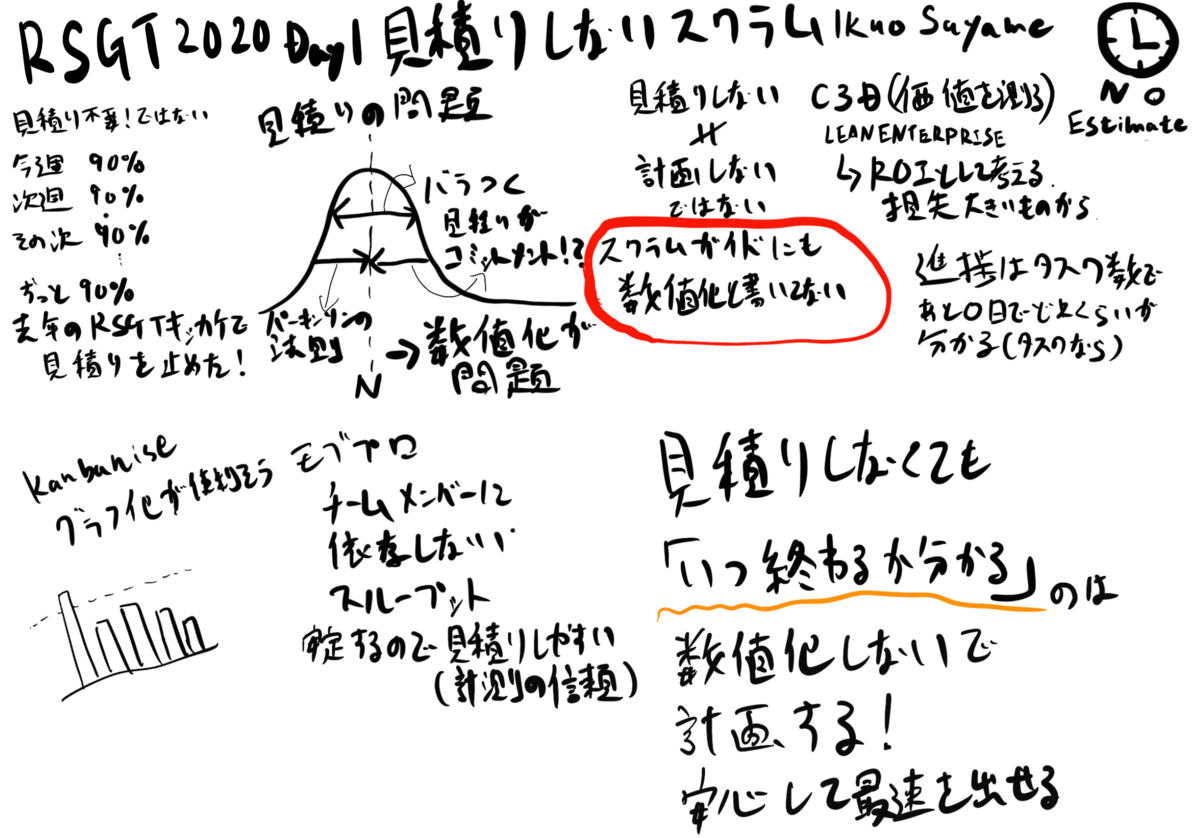 RSGT2020 Day1 見積りしないスクラム Ikuo Suyama
No
Estimate
見積り不要!ではない
今週 90%
次週 90%
その次 90%
ずっと 90%
去年のRSGTキッカケで
見積りを止めた!
見積りの問題
バラつく
見積りが
コミットメント!?
パーキンソンの
法則
N
→数値化が
問題
見積りしない
≠
計画しない
ではない
スクラムガイドにも
数値化と書いてない
C3日(価値を測る)
LEAN ENTERPRISE
↳ROIとして考える
損失大きいものから
進捗はタスク数で
あと0日でどれくらいか
分かる(タスクなら)
Kanbanise
グラフ化が便利そう
モブプロ
チームメンバーに
依存しない
スループット
安定するので見積りしやすい
(計測の信頼)
見積りしなくても
「いつ終わるか分かる」のは
数値化しないで
計画する!
安心して最速を出せる